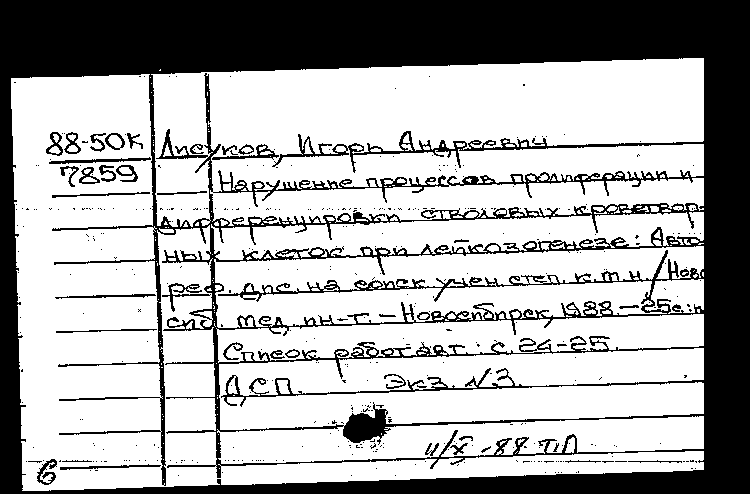 88-50К Лисуков, Игорь Андреевич
7859 Нарушение процессов пролиферации и
дифференцировки стволовых кроветвор-
ных клеток при лейкозогенезе: Авто-
реф. дис. на соиск учен. степ. к.м.н./Ново
сиб. мед. ин-т. – Новосибирск, 1988. – 25с.:и
Список работ авт.: с. 24-25.
ДСП. Экз. N3.
11/X -88 ТП
6